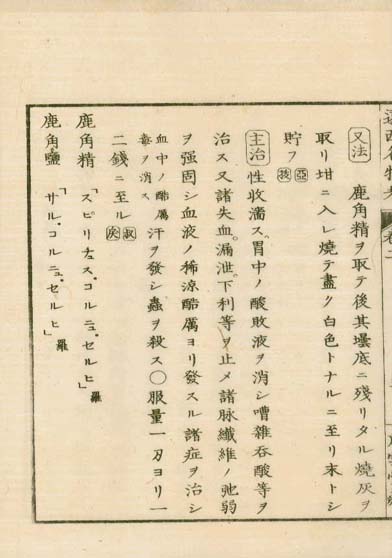 又法 鹿角精ヲ取テ後其壜底ニ残リタル焼灰ヲ
取リ坩ニ入レ焼テ盡ク白色トナルニ至リ末トシ
貯フ 亞 扶
主治 性收濇ス。胃中ノ酸敗液ヲ消シ嘈雜呑酸等ヲ
治ス又諸失血。漏泄。下利等ヲ止メ諸脉纖維ノ弛弱
ヲ强固シ血液ノ稀涼酷厲ヨリ發スル諸症ヲ治シ
血中ノ酷厲
毒ヲ消ス
汗ヲ發シ蟲ヲ殺ス〇服量一刃ヨリ一
二錢ニ至ル
鹿角精 「スピリチュス。コルニュ。セルヒ」羅
鹿角鹽 「サル。コルニュ。セルヒ」羅